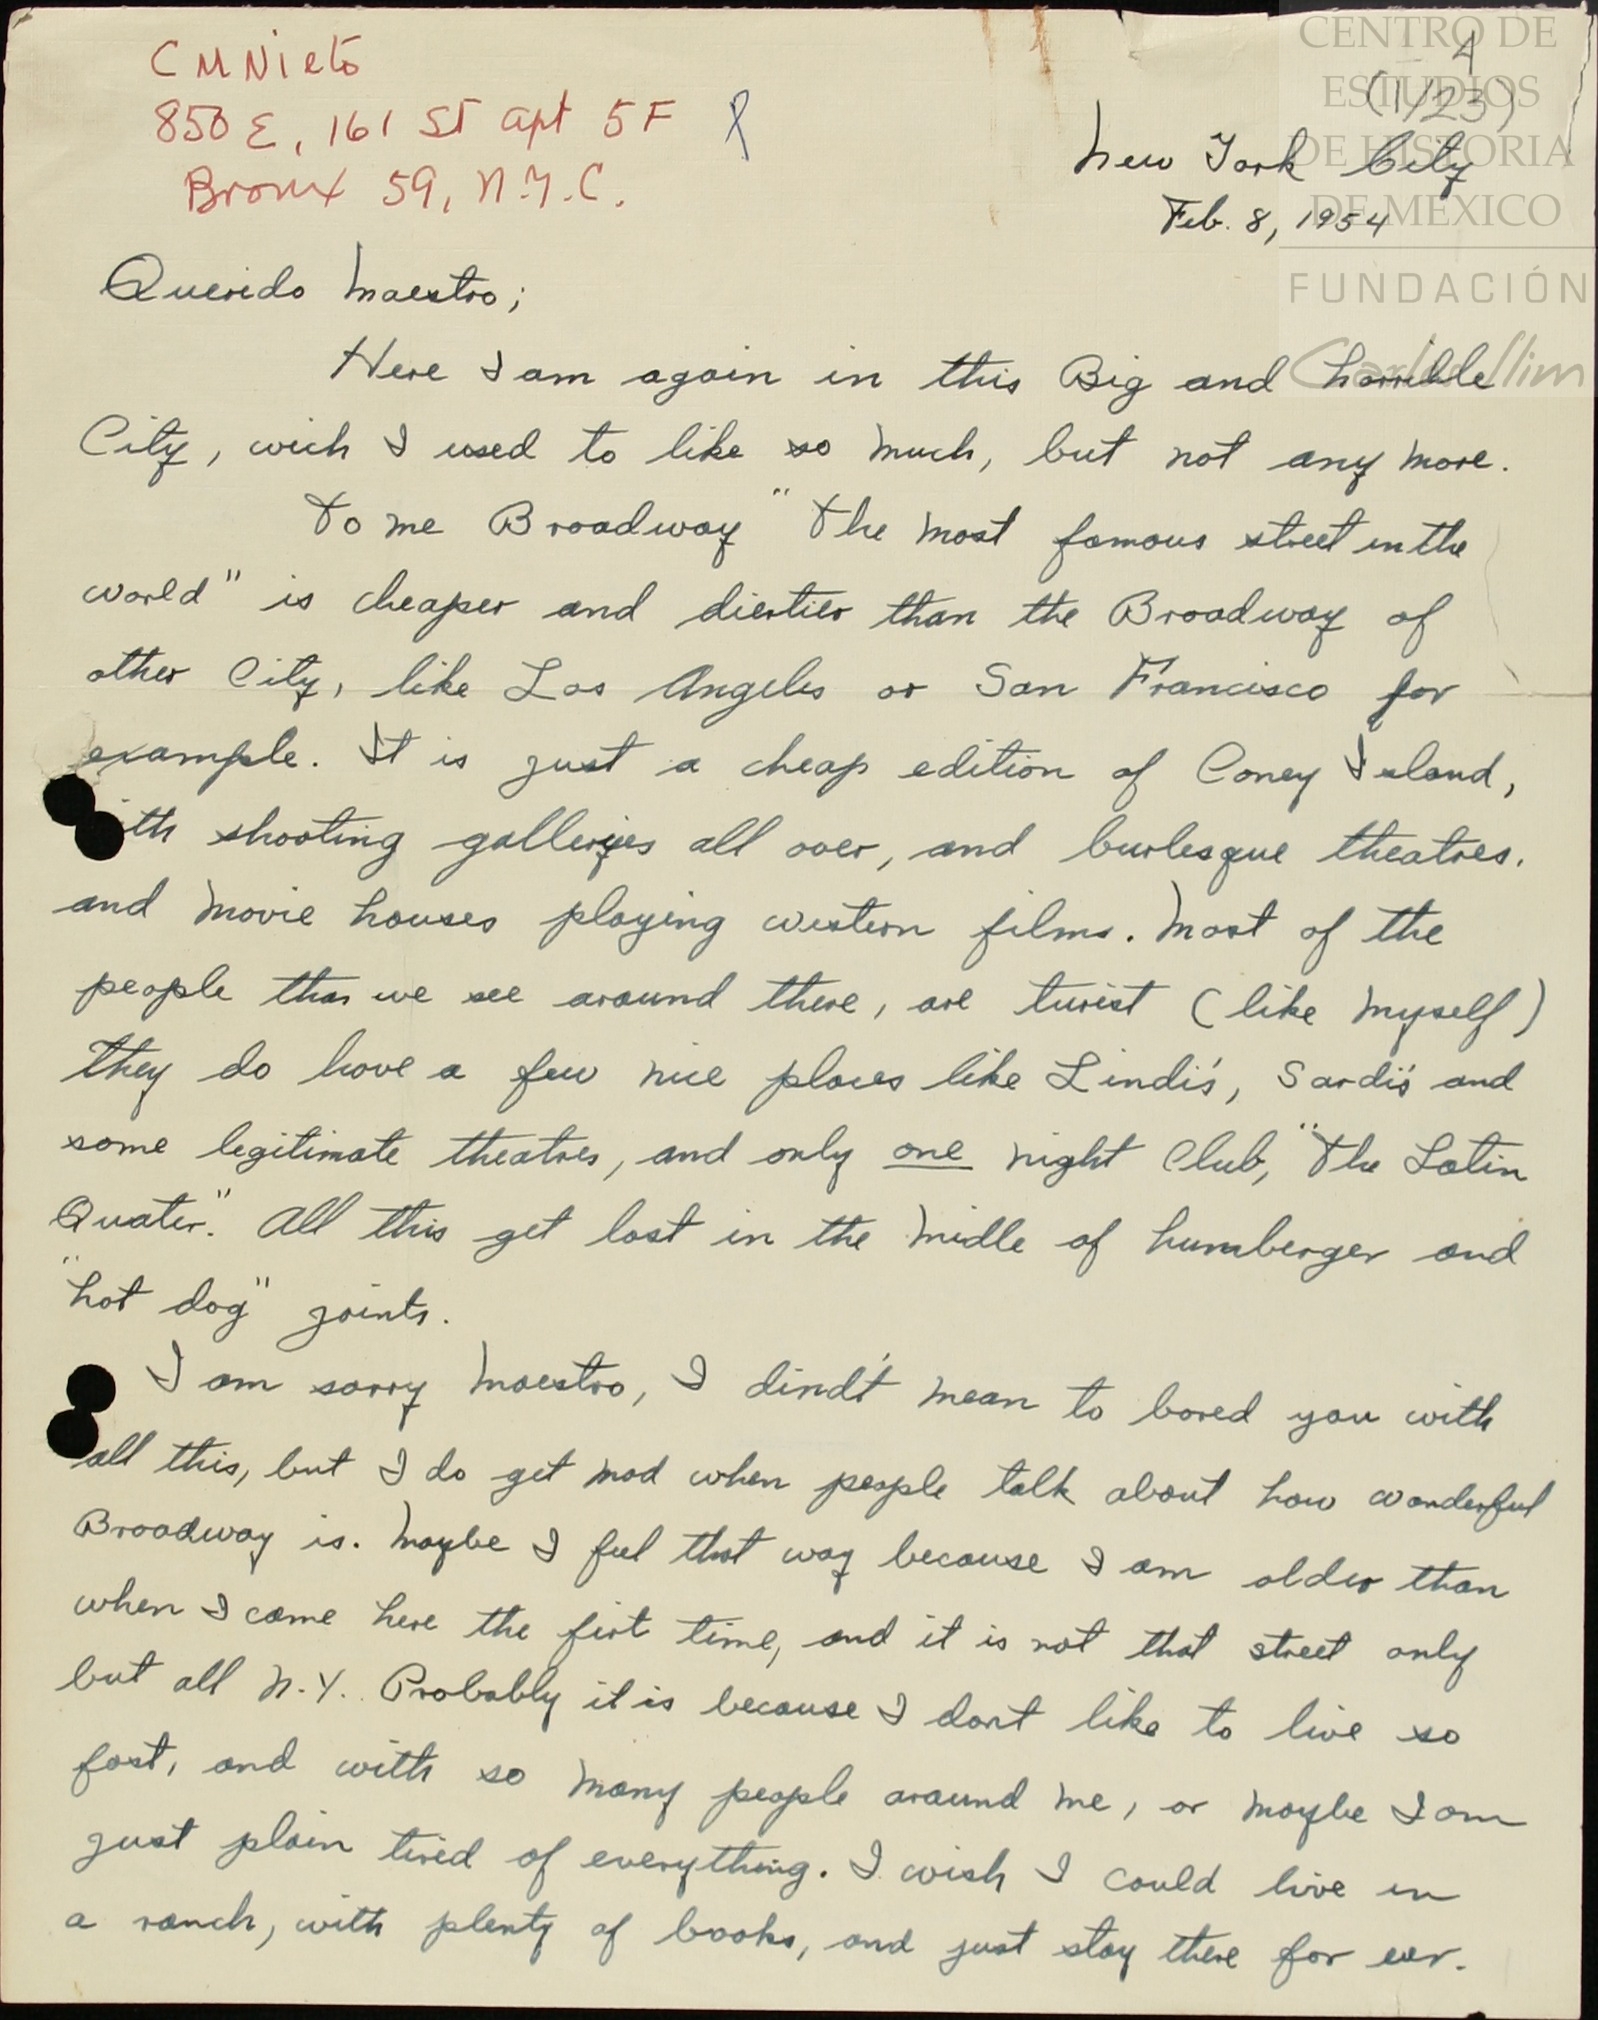 C M Nieto
850 E, 161 St apt 5 F
Bronx 59, N.Y.C.
4
(1/23)
CENTRO DE
ESTUDIOS
DE HISTORIA
DE MÉXICO
FUNDACIÓN
Carlos Slim
New York City
Feb. 8, 1954
Querido Maestro;
Here I am again in this Big and horrible
City, wich I used to like so much, but not any more.
To me Broadway "The most famous street in the
world" is cheaper and diertier than the Broadway of
other City, like Los Angeles or San Francisco for
example. It is just a cheap edition of Coney Island,
ith shooting galleries all over, and burlesque theatres.
and movie houses playing western films. Most of the
people that we see around there, are turist (like myself)
They do have a few nice places like Lindi's, Sardi's and
some legitimate theatres, and only one night Club, "The Latin
Quater". All this get lost in the midle of humberger and
"hot dog" joints.
I am sorry Maestro, I dind't mean to bored you with
all this, but I do get mad when people talk about how wonderful
Broadway is. Maybe I feel that way because I am older than
when I came here the firt time, and it is not that street only
but all N.Y. Probably it is because I dont like to live so
fast, and with so many people around me, or maybe I am
just plain tired of everything. I wish I could live in
a ranch, with plenty of books, and just stay there for ever.